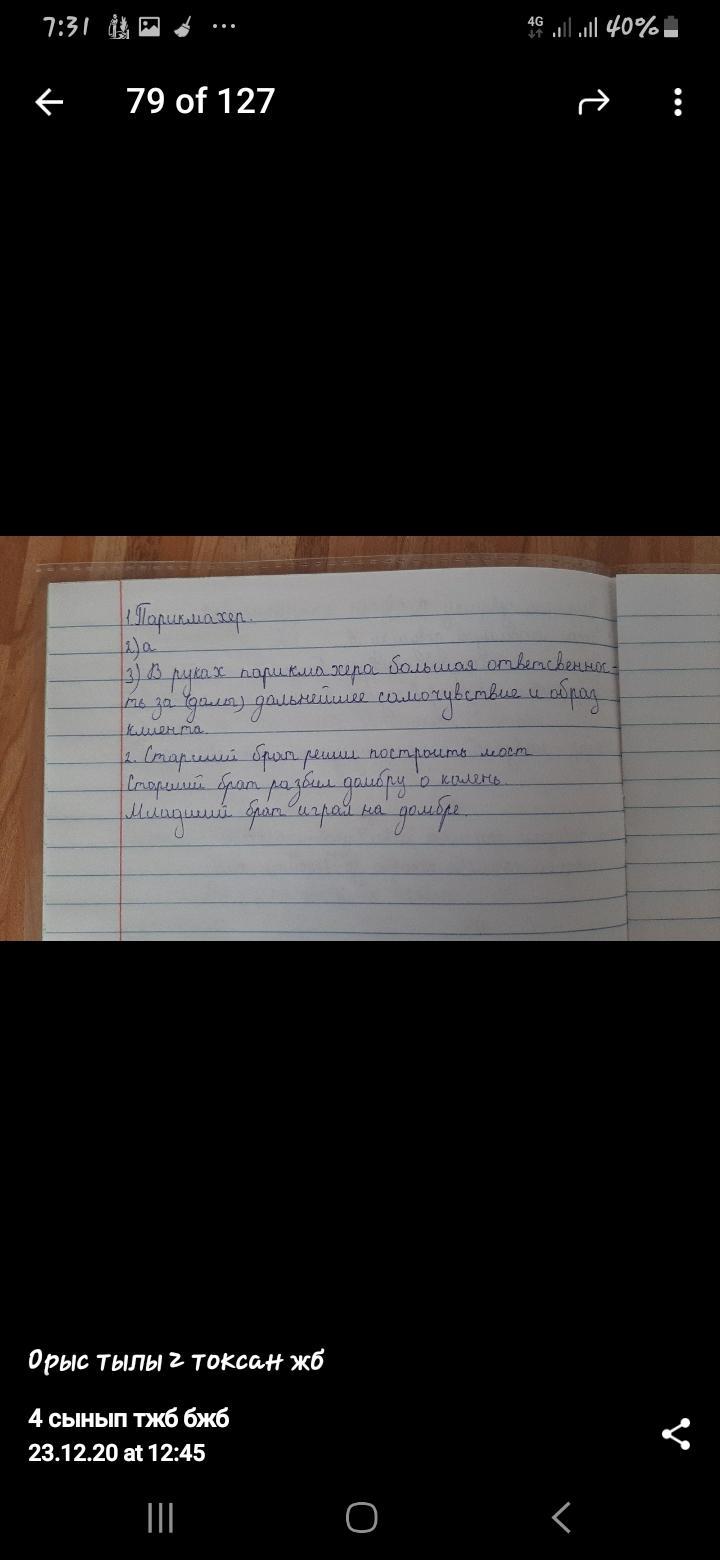 7:31 ... 4G 40%
79 of 127
1.Парикмахер.
2)а
3) В руках парикмахера большая ответсвеннос-
ть за (даль) дальнейшее самочувствие и образ
клиента.
2. Старший брат решил построить мост
Старший брат разбил домбру о калень.
Младший брат играл на домбре.
Орыс тылы 2 токсан жб
4 сынып тжб бжб
23.12.20 at 12:45